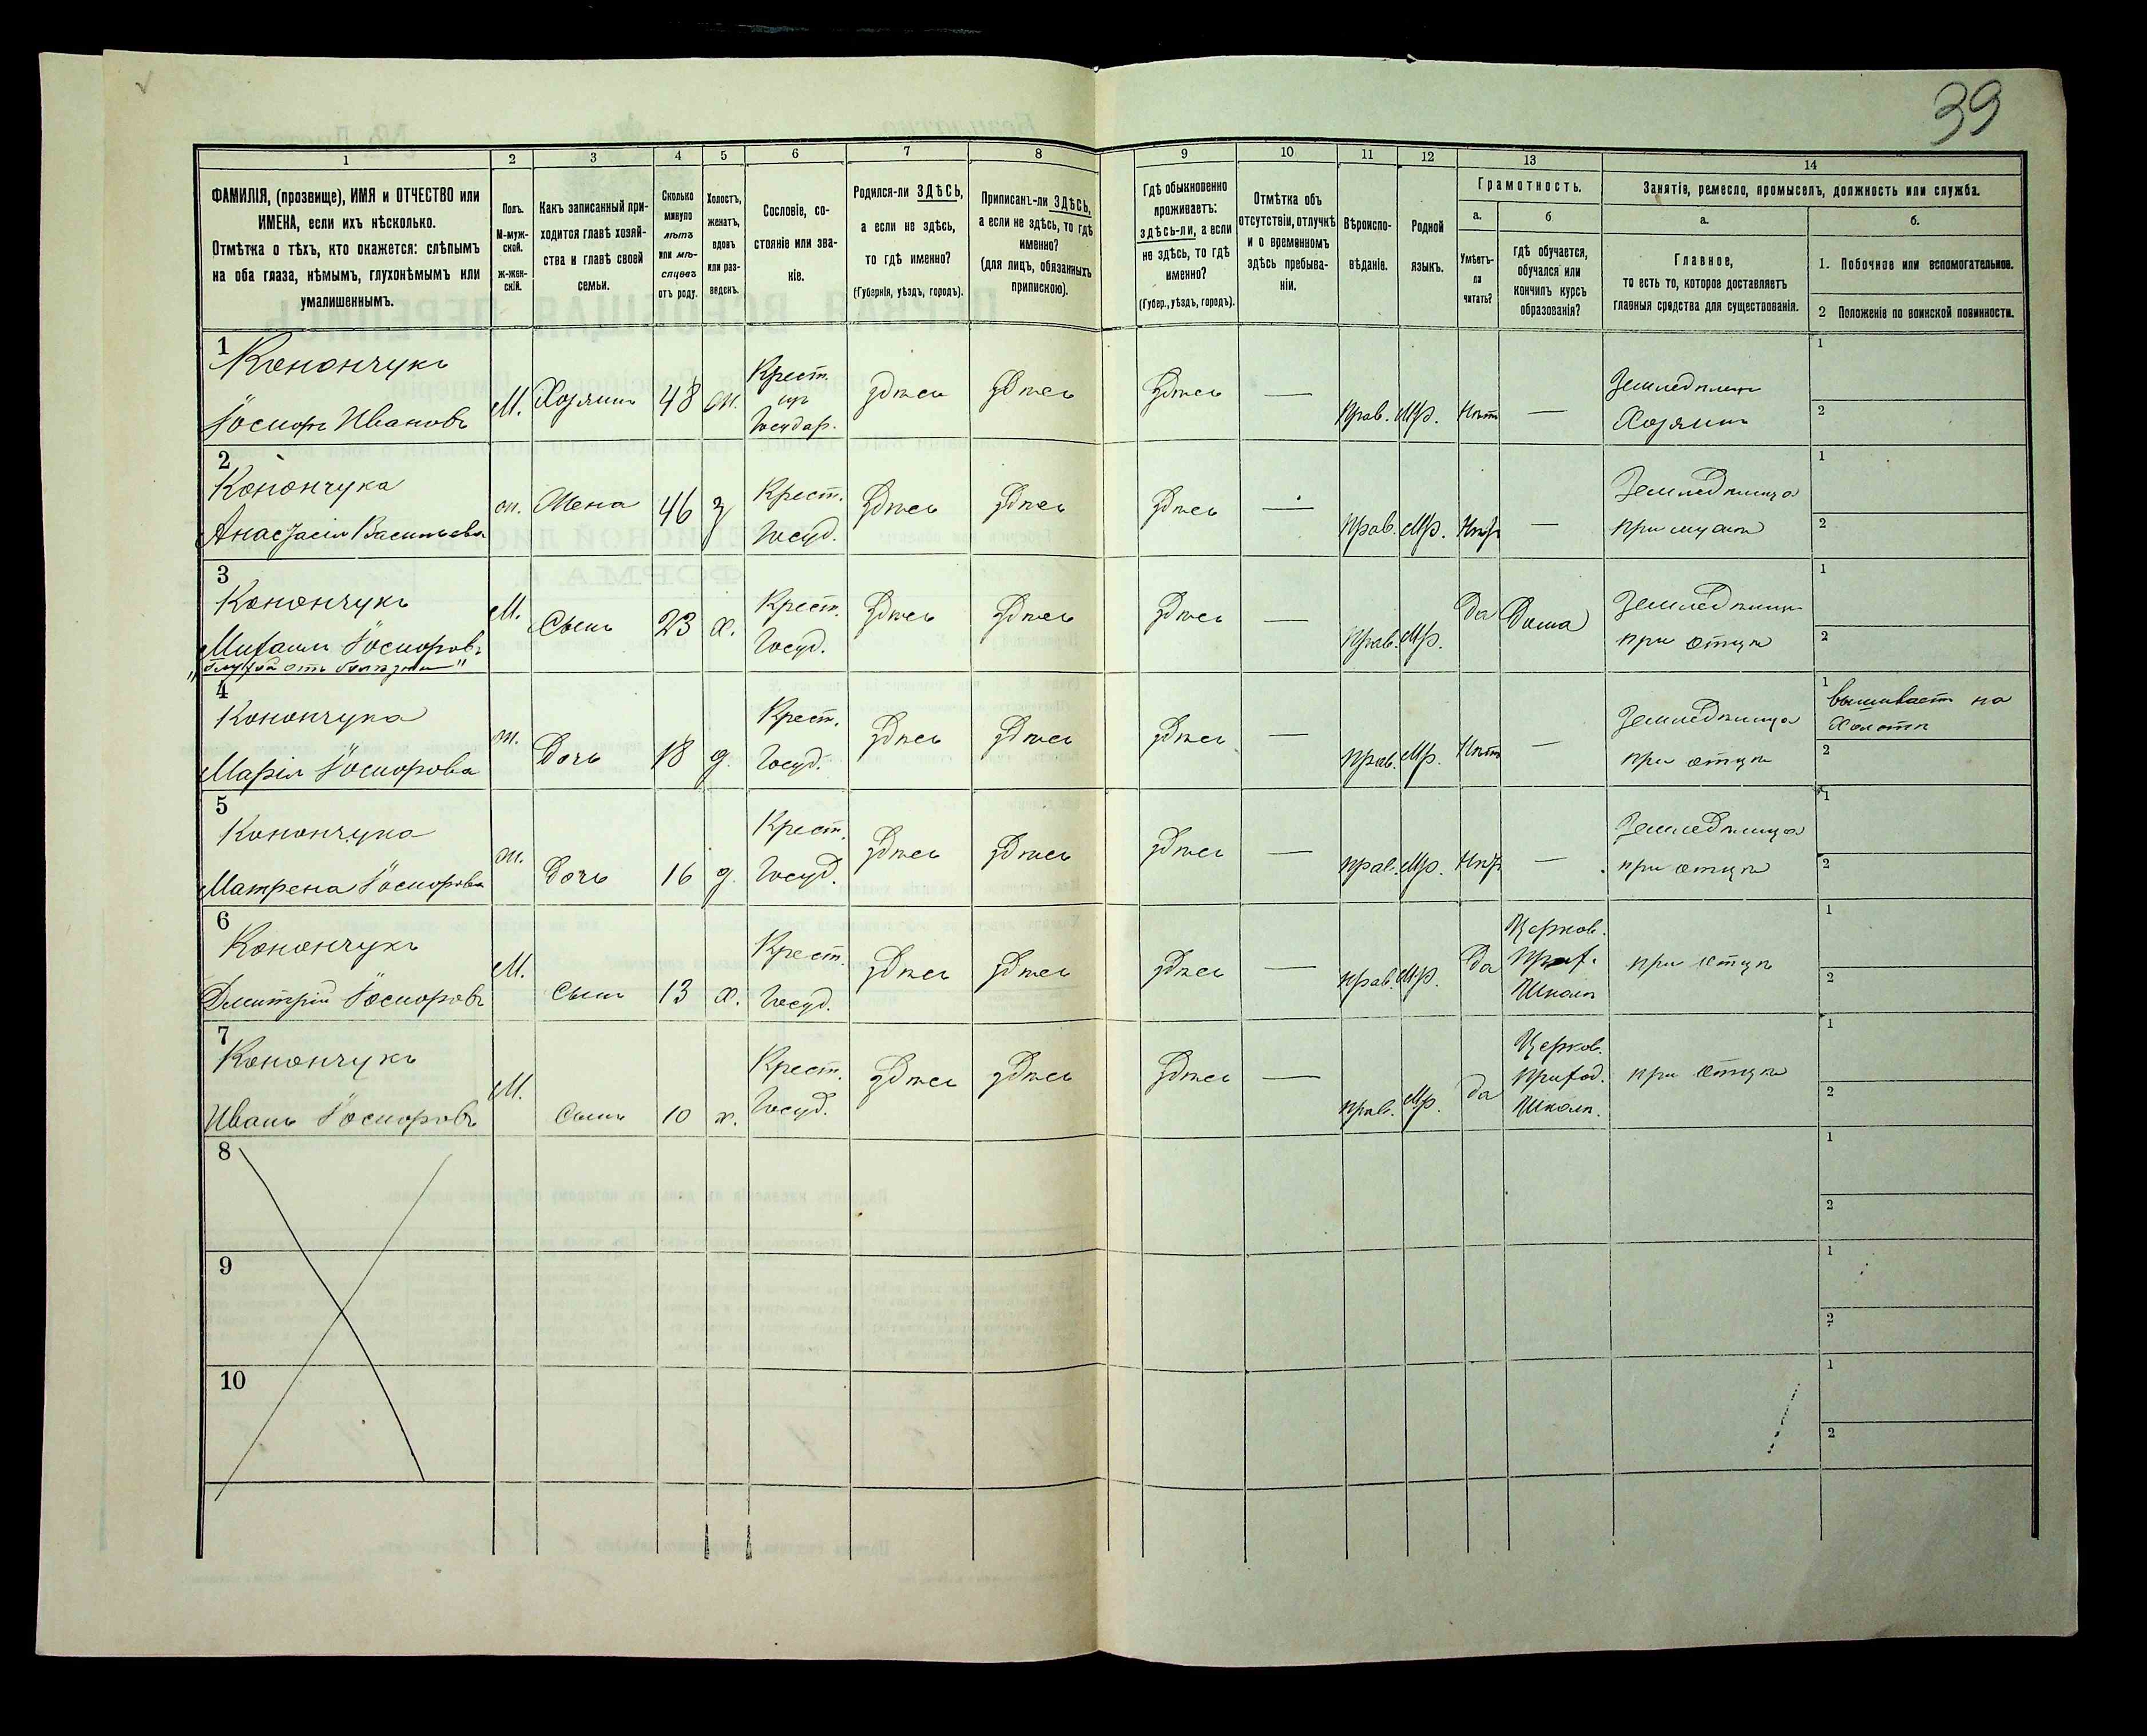 39
1
2
3
4
5
6
7
8
9
10
11
12
13
14
ФАМИЛІЯ, (прозвище), ИМЯ и ОТЧЕСТВО или
ИМЕНА, если ихъ нѣсколько.
Отмѣтка о тѣхъ, кто окажется: слѣпымъ
на оба глаза, нѣмымъ, глухонѣмымъ или
умалишеннымъ.
Полъ.
М-муж-
ской.
Ж-жен-
скій.
Какъ записанный при-
ходится главѣ хозяй-
ства и главѣ своей
семьи.
Сколько
минуло
лѣтъ
или мѣ-
сяцевъ
отъ роду.
Холостъ,
женатъ,
вдовъ
или раз-
веденъ.
Сословіе, со-
стояніе или зва-
ніе.
Родился-ли ЗДѢСЬ,
а если не здѣсь,
то гдѣ именно?
(Губернія, уѣздъ, городъ).
Приписанъ-ли ЗДѢСЬ,
а если не здѣсь, то гдѣ
именно?
(для лицъ, обязанныхъ
припискою).
Гдѣ обыкновенно
проживаетъ:
здѣсь-ли, а если
не здѣсь, то гдѣ
именно?
(Губер., уѣздъ, городъ).
Отмѣтка объ
отсутствіи, отлучкѣ
и о временномъ
здѣсь пребыва-
ніи.
Вѣроиспо-
вѣданіе.
Родной
языкъ.
Грамотность.
а.
Умѣетъ-
ли
читать?
б
гдѣ обучается,
обучался или
кончилъ курсъ
образованія?
Занятія, ремесло, промыселъ, должность или служба.
а.
Главное,
то есть то, которое доставляетъ
главныя средства для существованія.
б.
1. Побочное или вспомогательное.
2 Положеніе по воинской повинности.
1
Конончукъ
Іосифъ Ивановъ
М. Хозяинъ 48 ж. Крест. изъ Государ. здѣсь здѣсь здѣсь — Прав. Мр. Нѣтъ — Земледѣлецъ Хозяинъ
1
2
2
Конончука
Анастасія Васильева
ж. Жена 46 з Крест. Госуд. здѣсь здѣсь здѣсь — Прав. Мр. Нѣт — Земледѣлица при мужѣ
1
2
3
Конончукъ
Михаилъ Іосифовъ
М. Сынъ 23 х. Крест. Госуд. здѣсь здѣсь здѣсь — Прав. Мр. Да Дома Земледѣлецъ при отцѣ
1
2
4
Конончука
Марія Іосифова
ж. Дочь 18 д. Крест. Госуд. здѣсь здѣсь здѣсь — Прав. Мр. Нѣтъ — Земледѣлица при отцѣ
1 вышиваетъ на холстѣ
2
5
Конончука
Матрена Іосифова
ж. Дочь 16 д. Крест. Госуд. здѣсь здѣсь здѣсь — Прав. Мр. Нѣт — Земледѣлица при отцѣ
1
2
6
Конончукъ
Дмитрій Іосифовъ
М. Сынъ 13 х. Крест. Госуд. здѣсь здѣсь здѣсь — Прав. Мр. Да Церков. Прих. Школѣ при отцѣ
1
2
7
Конончукъ
Иванъ Іосифовъ
М. Сынъ 10 х. Крест. Госуд. здѣсь здѣсь здѣсь — Прав. Мр. да Церков. Приход. Школѣ. при отцѣ
1
2
8
1
2
9
1
2
10
1
2